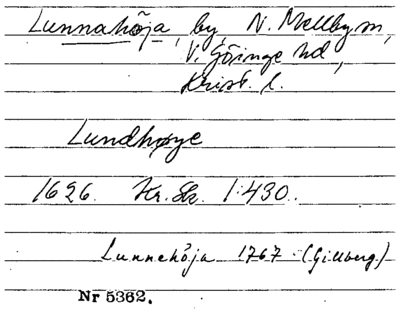 Lunnahöja, by, N. Mellby sn,
V. Göinge hd,
Krist. l.
Lundhøye
1626. Kr. Sk. 1:430.
Lunnehöja 1767 (Gillberg.)
Nr 5362.